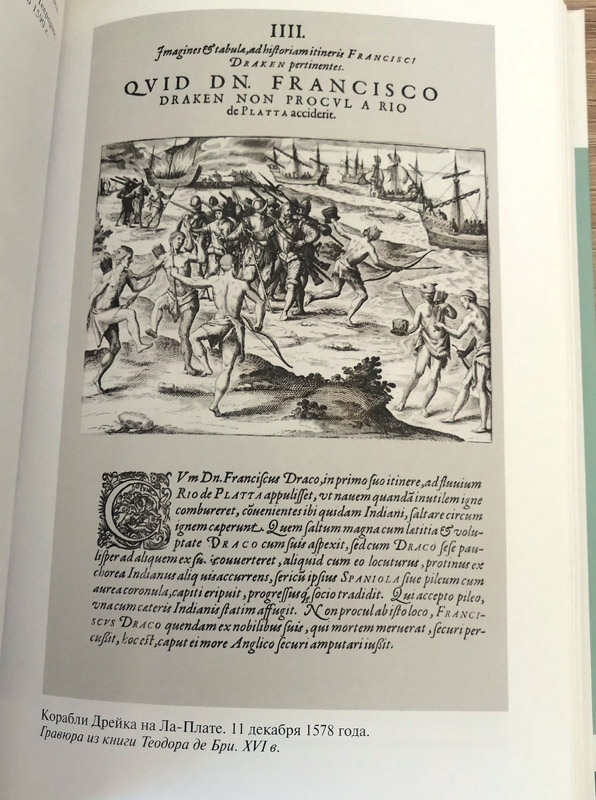 1590 г.
IIII.
Imagines & tabulæ, ad historiam itineris FRANCISCI
DRAKEN pertinentes.
QVID DN. FRANCISCO
DRAKEN NON PROCVL A RIO
de PLATTA acciderit.
CVm Dn. Franciscus Draco, in primo suo itinere, ad fluuium
RIO de PLATTA appulisset, vt nauem quandã inutilem igne
combureret, cõuenientes ibi quidam Indiani, saltare circum
ignem caperunt. Quem saltum magna cum latitia & volu-
ptate DRACO cum suis aspexit, sed cum DRACO sese pau-
lisper ad aliquem ex suis couuerteret, aliquid cum eo locuturus, protinus ex
chorea Indianus aliquis accurrens, sericũ ipsius SPANIOLA siue pileum cum
aurea coronula, capiti eripuit, progressusq; socio tradidit. Qui accepto pileo,
vna cum cateris Indianis statim affugit. Non procul ab isto loco, FRANCI-
SCVS DRACO quendam ex nobilibus suis, qui mortem meruerat, securi per-
cussit, hoc est, caput ei more Anglico securi amputari iussit.
Корабли Дрейка на Ла-Плате. 11 декабря 1578 года.
Гравюра из книги Теодора де Бри. XVI в.